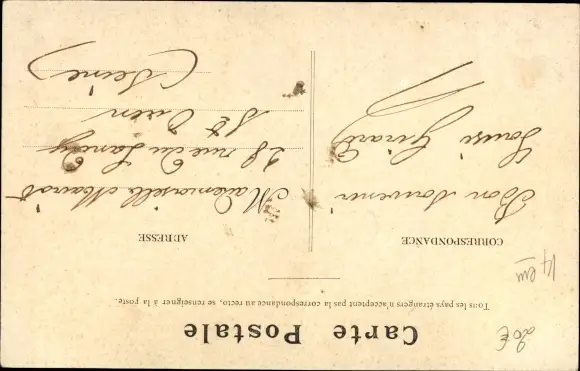 Carte Postale
Tous les pays étrangers n'acceptent pas la correspondance au recto, se renseigner à la poste.
CORRESPONDANCE
Bon souvenir
Louise Girard
ADRESSE
Mademoiselle
28 rue du Landy
St Ouen
(Seine)
20€